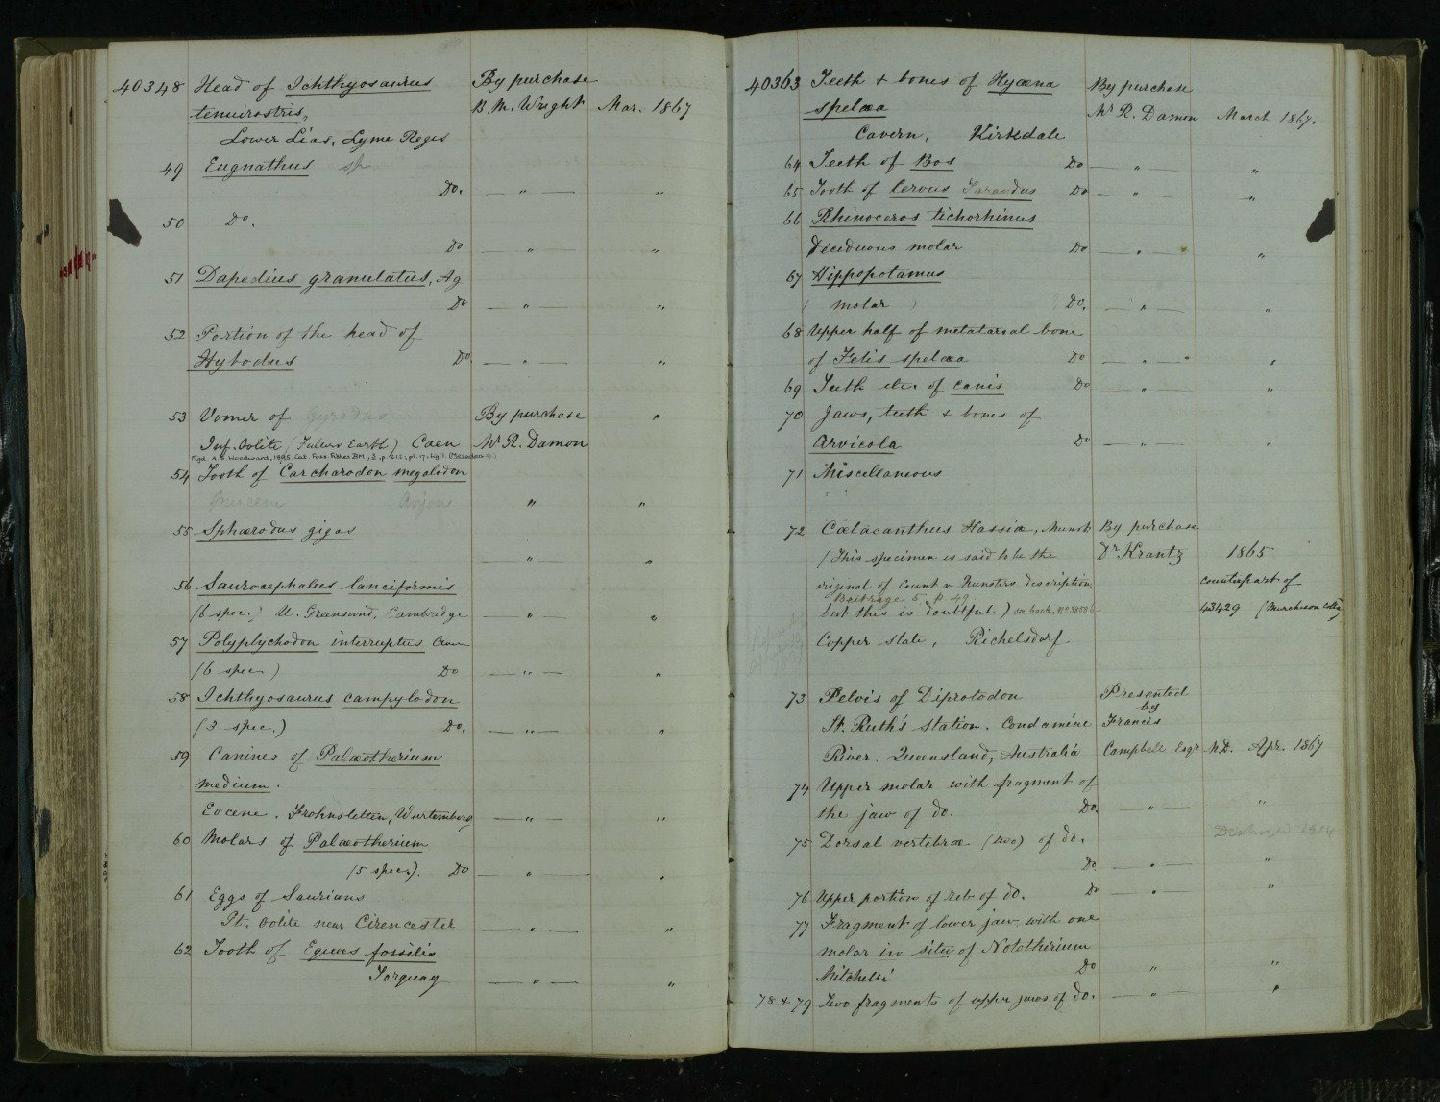 40348 Head of Ichthyosaurus By purchase
tenuirostris, B. M. Wright Mar. 1867
Lower Lias, Lyme Regis
49 Eugnathus sp
Do. — " — "
50 Do.
Do — " — "
51 Dapedius granulatus, Ag
Do — " — "
52 Portion of the head of
Hybodus Do — " — "
53 Vomer of Gyrodus By purchase "
Inf. Oolite (Fullers Earth) Caen Mr R. Damon
Figd. A. S. Woodward, 1895, Cat. Foss. Fishes BM, 3, p. 212, pl. 17, fig 1.
54 Tooth of Carcharodon megalodon
" "
55 Sphærodus gigas
" "
56 Saurocephalus lanciformis
(6 spec.) U. Greensand, Cambridge — " — "
57 Polyptychodon interruptus Owen
(6 spec) Do — " — "
58 Ichthyosaurus campylodon
(3 spec.) Do. — " — "
59 Canines of Palæotherium
medium.
Eocene. Frohnstetten, Wurtemberg — " — "
60 Molars of Palæotherium
(5 spec). Do — " — "
61 Eggs of Saurians
Gt. Oolite near Cirencester — " — "
62 Tooth of Equus fossilis
Torquay — " — "
40363 Teeth & bones of Hyæna By purchase
spelæa Mr R. Damon March 1867.
Cavern, Kirkdale
64 Teeth of Bos Do — " — "
65 Tooth of Cervus Tarandus Do — " "
66 Rhinoceros tichorhinus
Deciduous molar Do — " — "
67 Hippopotamus
molar Do. — " — "
68 Upper half of metatarsal bone
of Felis spelæa Do — " — "
69 Teeth etc. of Canis Do — " — "
70 Jaws, teeth & bones of
Arvicola Do — " — "
71 Miscellaneous
72 Cœlacanthus Hassiæ, Munst By purchase
(This specimen is said to be the Dr Krantz 1865
original of Count v Munsters description counterpart of
Beitrage 5. p. 49.
but this is doubtful.) 43429 (Murchison Colln)
Copper slate, Richelsdorf
73 Pelvis of Diprotodon Presented
by
St. Ruth's Station. Condamine Francis
River. Queensland, Australia Campbell Esqr M.D. Apr. 1867
74 Upper molar with fragment of
the jaw of do. Do. — " — "
Destroyed
75 Dorsal vertebræ (two) of do.
Do — " — "
76 Upper portion of rib of do. Do — " — "
77 Fragment of lower jaw with one
molar in situ of Nototherium
Mitchelli Do " "
78 & 79 Two fragments of upper jaws of do. — " — "